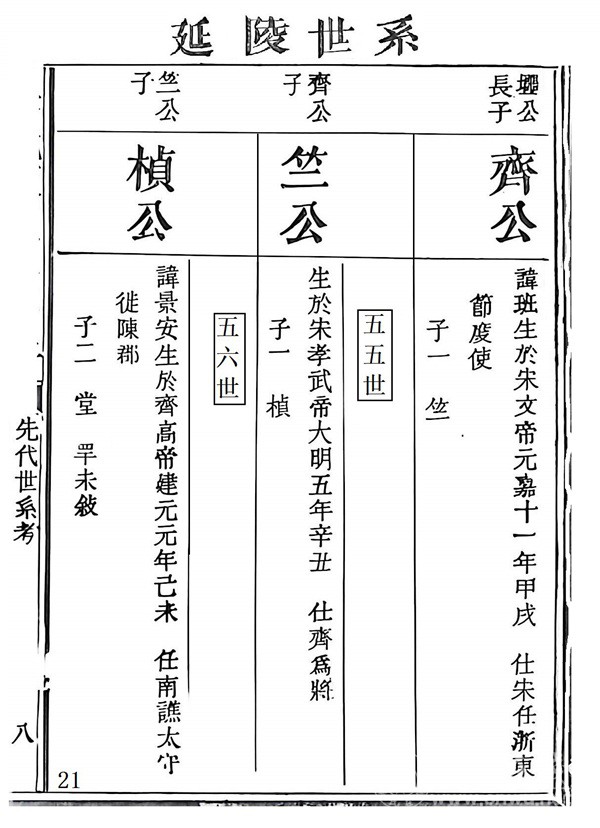 延陵世系
公
長子
齊公
諱班生於宋文帝元嘉十一年甲戌 仕宋任浙東
節度使
子一 竺
五五世
齊公
子
竺公
生於宋孝武帝大明五年辛丑 仕齊為將
子一 楨
五六世
竺公
子
楨公
諱景安生於齊高帝建元元年己未 任南譙太守
徙陳郡
子二 堂 罕未敍
先代世系考
八
21